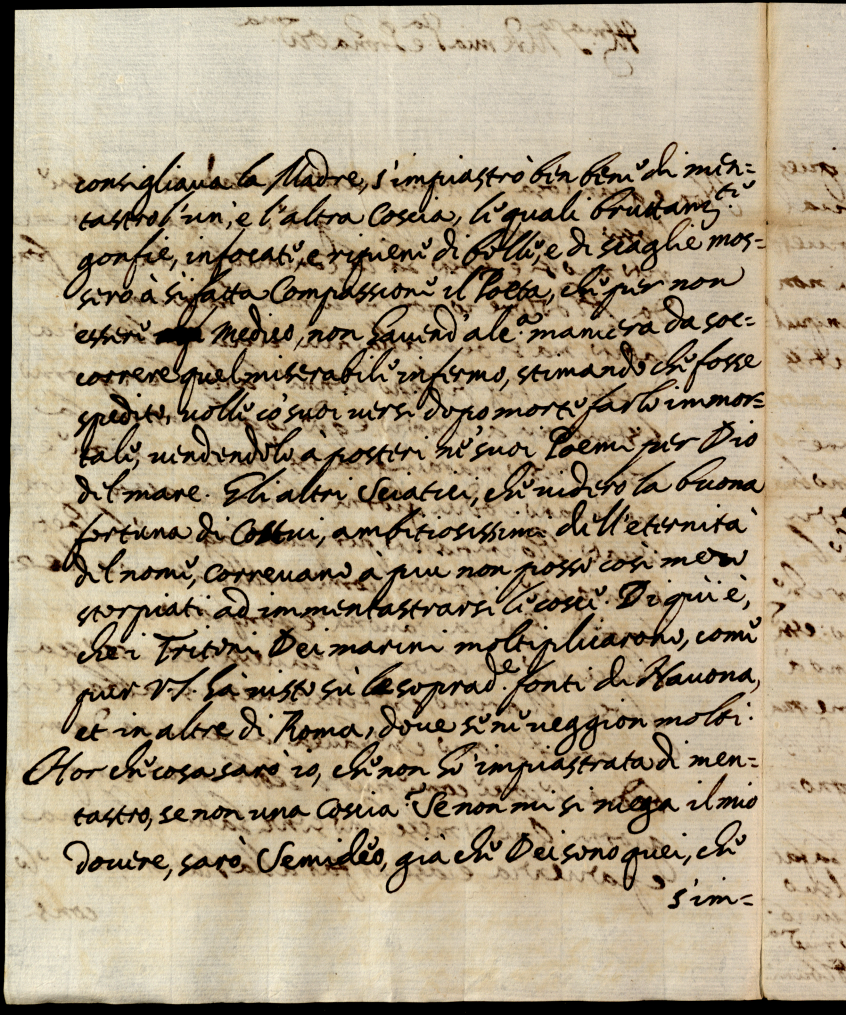 consigliaua la Madre, s'impiastrò ben bene di men=
tastro l'un', e l'altra Coscia, le quali bruttam.te
gonfie, infocate, e ripiene di bolle, e di scaglie mos=
sero à sì fatta Compassione il Poeta, che per non
essere Medico, non hauend'alc.a maniera da soc=
correre quel miserabile infermo, stimando che fosse
spedito, volle co' suoi uersi dopo morte farlo immor=
tale, uendendolo à posteri ne' suoi Poemi per Dio
del mare. Gli altri Sciatici, che uidero la buona
fortuna di Costui, ambitiosissimi dell'eternità
del nome, correuano à piu non posso così mezo
storpiati ad immentastrarsi le coscie. Di quì è,
che i Tritoni Dei marini moltiplicarono, come
pur V.S. hà uisto sù le soprad.e fonti di Nauona,
et in altre di Roma, doue se ne ueggion molti.
Hor che cosa sarò io, che non hò impiastrata di men=
tastro, se non una Coscia? Se non mi si niega il mio
douere, sarò Semideo, già che Dei sono quei, che
s'im=